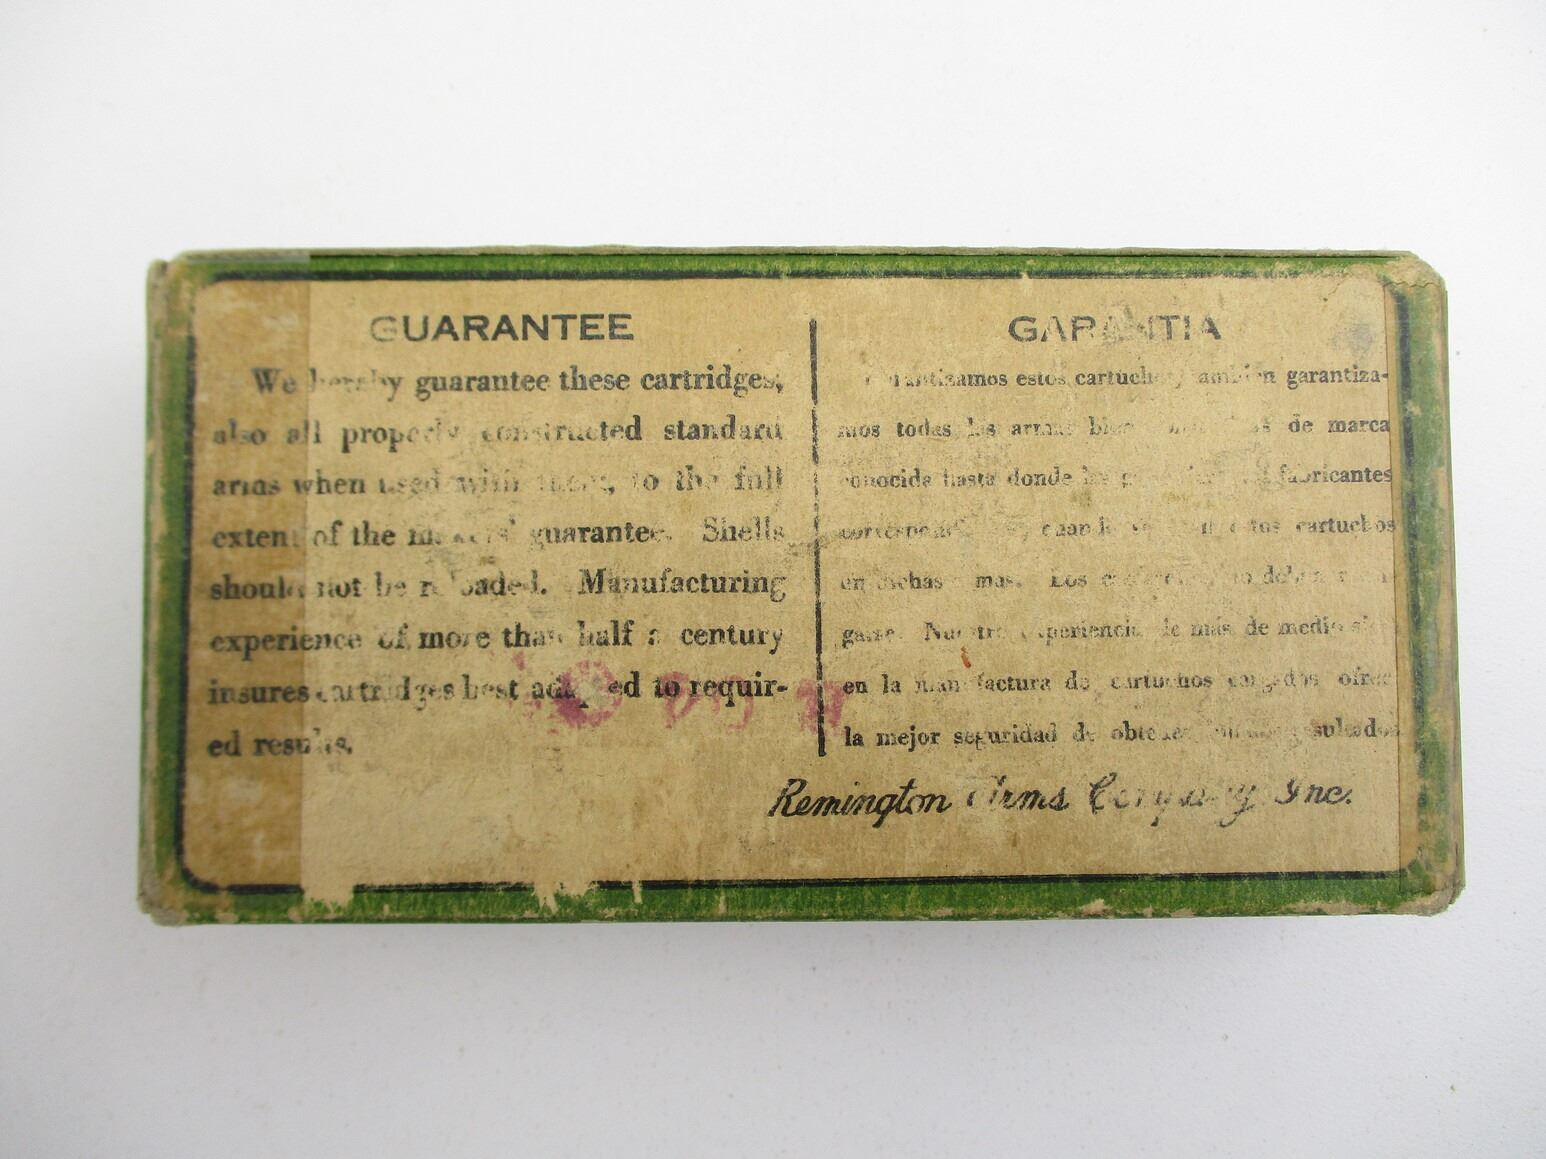 GUARANTEE
We hereby guarantee these cartridges,
also all properly constructed standard
arms when used with them, to the full
extent of the makers' guarantee. Shells
should not be reloaded. Manufacturing
experience of more than half a century
insures cartridges best adapted to requir-
ed results.
GARANTIA
Garantizamos estos cartuchos, también garantiza-
mos todas las armas de marca
conocida hasta donde los fabricantes
cuando cartuchos
en dichas Los
Nuestra experiencia de más de medio
en la manufactura de cartuchos cargados
la mejor seguridad de obtener resultados
Remington Arms Company, Inc.